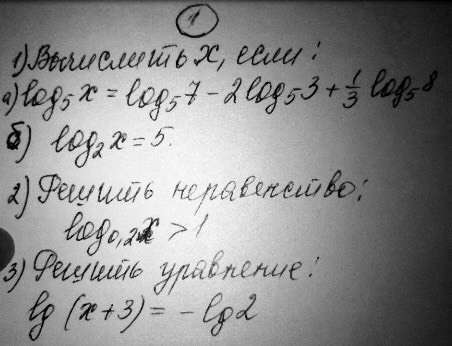 1
1) Вычислить x, если:
а) log₅x = log₅7 - 2log₅3 + 1/3 log₅8
б) log₂x = 5.
2) Решить неравенство:
log₀,₂x > 1
3) Решить уравнение:
lg (x+3) = -lg2